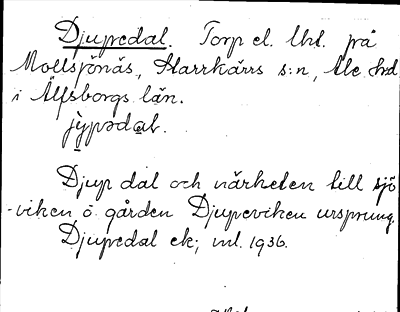 Djupedal. Torp el. lht. på
Mollsjönäs, Starrkärrs s:n, Ale hd
i Älfsborgs län.
jỳpədal.
Djup dal och närheten till sjö
-viken ö gården Djupeviken ursprung.
Djupedal ek; ml. 1936.